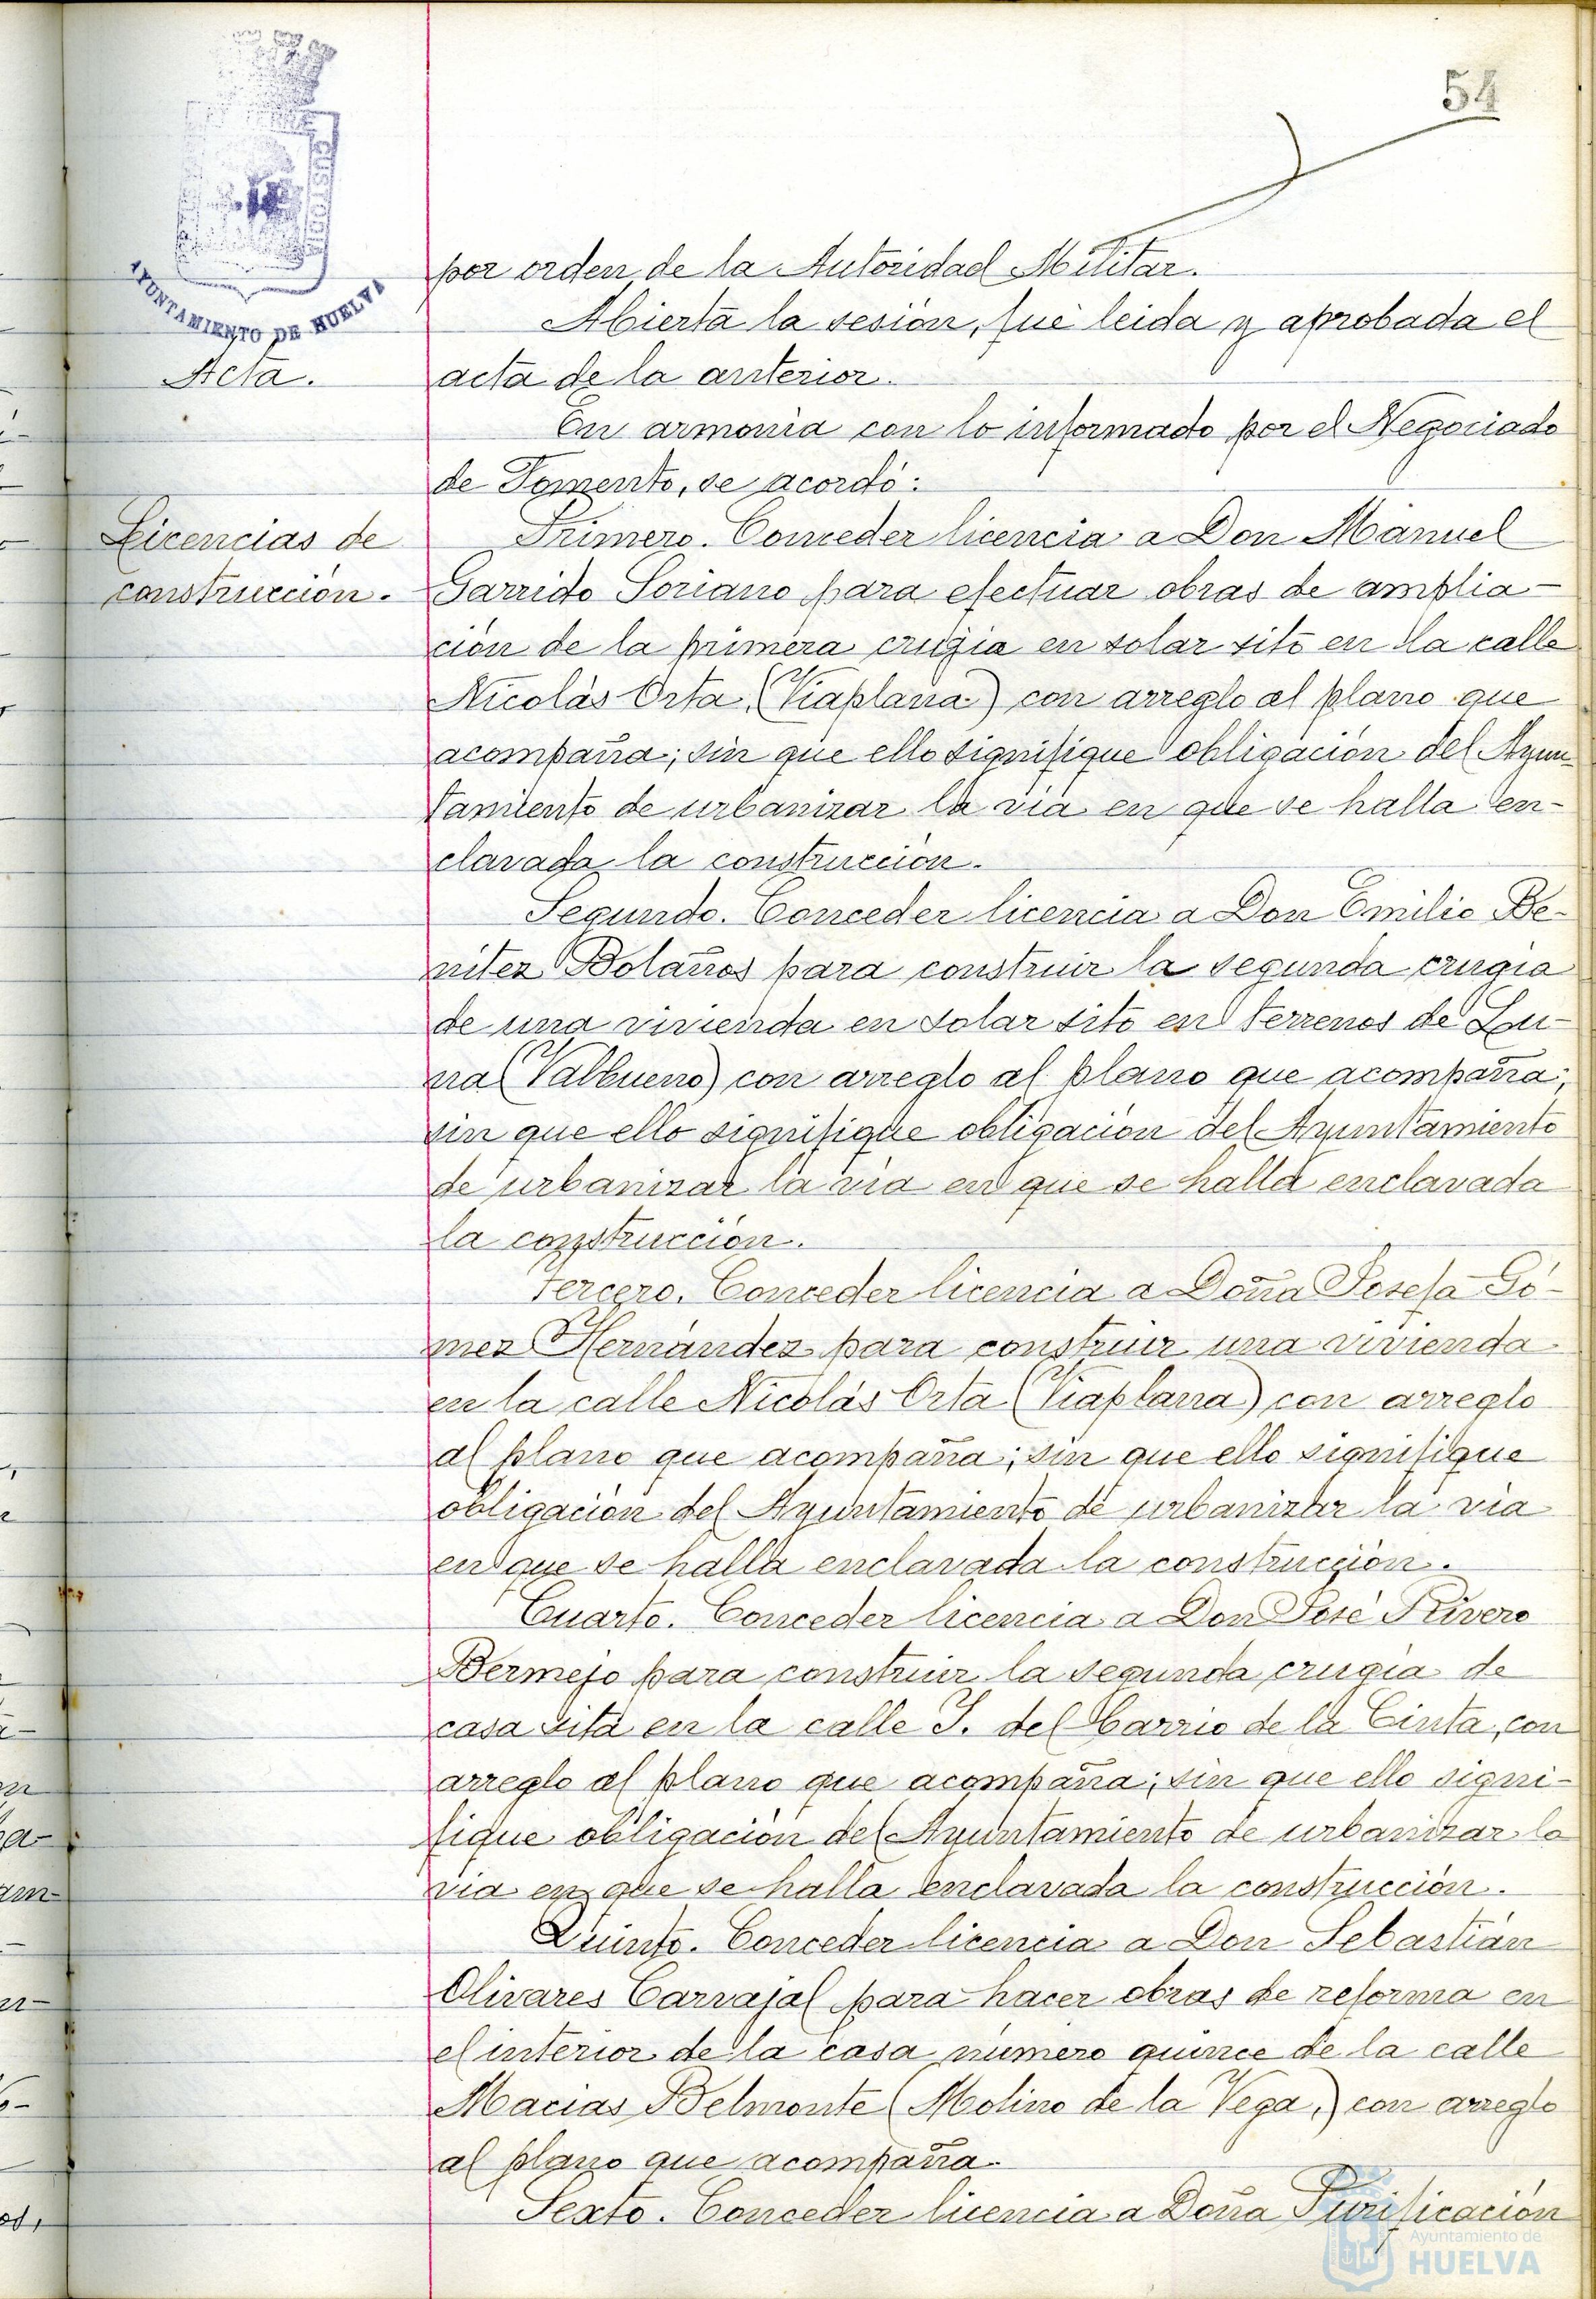 54
AYUNTAMIENTO DE HUELVA
por orden de la Autoridad Militar.
Abierta la sesión, fué leida y aprobada el
Acta.
acta de la anterior.
En armonia con lo informado por el Negociado
de Fomento, se acordó:
Licencias de
construcción.
Primero. Conceder licencia a Don Manuel
Garrido Soriano para efectuar obras de amplia-
ción de la primera crugia en solar sito en la calle
Nicolás Orta (Viaplana) con arreglo al plano que
acompaña; sin que ello signifique obligación del Ayun-
tamiento de urbanizar la via en que se halla en-
clavada la construcción.
Segundo. Conceder licencia a Don Emilio Be-
nitez Bolaños para construir la segunda crugia
de una vivienda en solar sito en terrenos de Lu-
na (Valbueno) con arreglo al plano que acompaña;
sin que ello signifique obligación del Ayuntamiento
de urbanizar la via en que se halla enclavada
la construcción.
Tercero. Conceder licencia a Doña Josefa Gó-
mez Hernández para construir una vivienda
en la calle Nicolás Orta (Viaplana) con arreglo
al plano que acompaña; sin que ello signifique
obligación del Ayuntamiento de urbanizar la via
en que se halla enclavada la construcción.
Cuarto. Conceder licencia a Don José Rivero
Bermejo para construir la segunda crugia de
casa sita en la calle J. del Barrio de la Cinta, con
arreglo al plano que acompaña; sin que ello signi-
fique obligación del Ayuntamiento de urbanizar la
via en que se halla enclavada la construcción.
Quinto. Conceder licencia a Don Sebastián
Olivares Carvajal para hacer obras de reforma en
el interior de la casa número quince de la calle
Macias Belmonte (Molino de la Vega,) con arreglo
al plano que acompaña.
Sexto. Conceder licencia a Doña Purificación
Ayuntamiento de
HUELVA